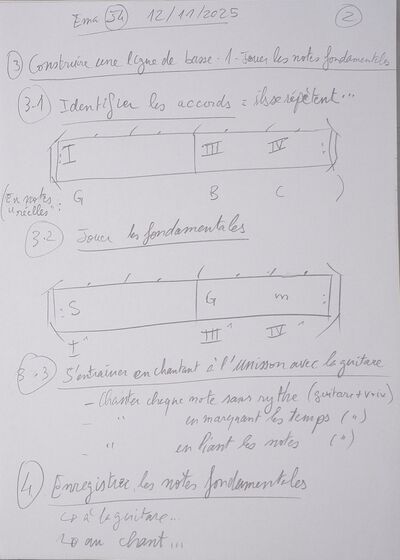 Ema 54 12/11/2025 2
3 Construire une ligne de basse - 1 - Jouer les notes fondamentales
3.1 Identifier les accords = ils se répètent...
I III IV
(En notes "réelles" : G B C )
3.2 Jouer les fondamentales
S G m
I" III" IV"
3.3 S'entraîner en chantant à l'unisson avec la guitare
- Chanter chaque note sans rythe (guitare + voix)
- " en marquant les temps (")
- " en liant les notes (")
4 Enregistrer les notes fondamentales
à la guitare...
au chant...